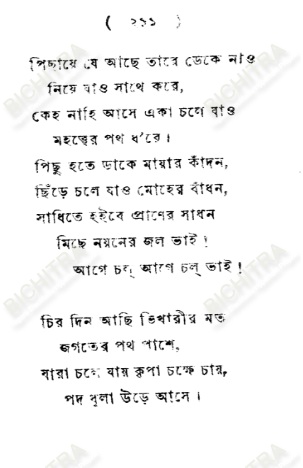 ( ২৯১ )
পিছায়ে যে আছে তারে ডেকে নাও
নিয়ে যাও সাথে করে,
কেহ নাহি আসে একা চলে যাও
মহত্ত্বের পথ ধ'রে।
পিছু হতে ডাকে মায়ার কাঁদন,
ছিঁড়ে চলে যাও মোহের বাঁধন,
সাধিতে হইবে প্রাণের সাধন
মিছে নয়নের জল ভাই!
আগে চল্ আগে চল্ ভাই!
চির দিন আছি ভিখারীর মত
জগতের পথ পাশে,
যারা চলে যায় কৃপা চক্ষে চায়,
পদ ধুলা উড়ে আসে।
BICHITRA
BICHITRA
BICHITRA
BICHITRA
BICHITRA
BICHITRA